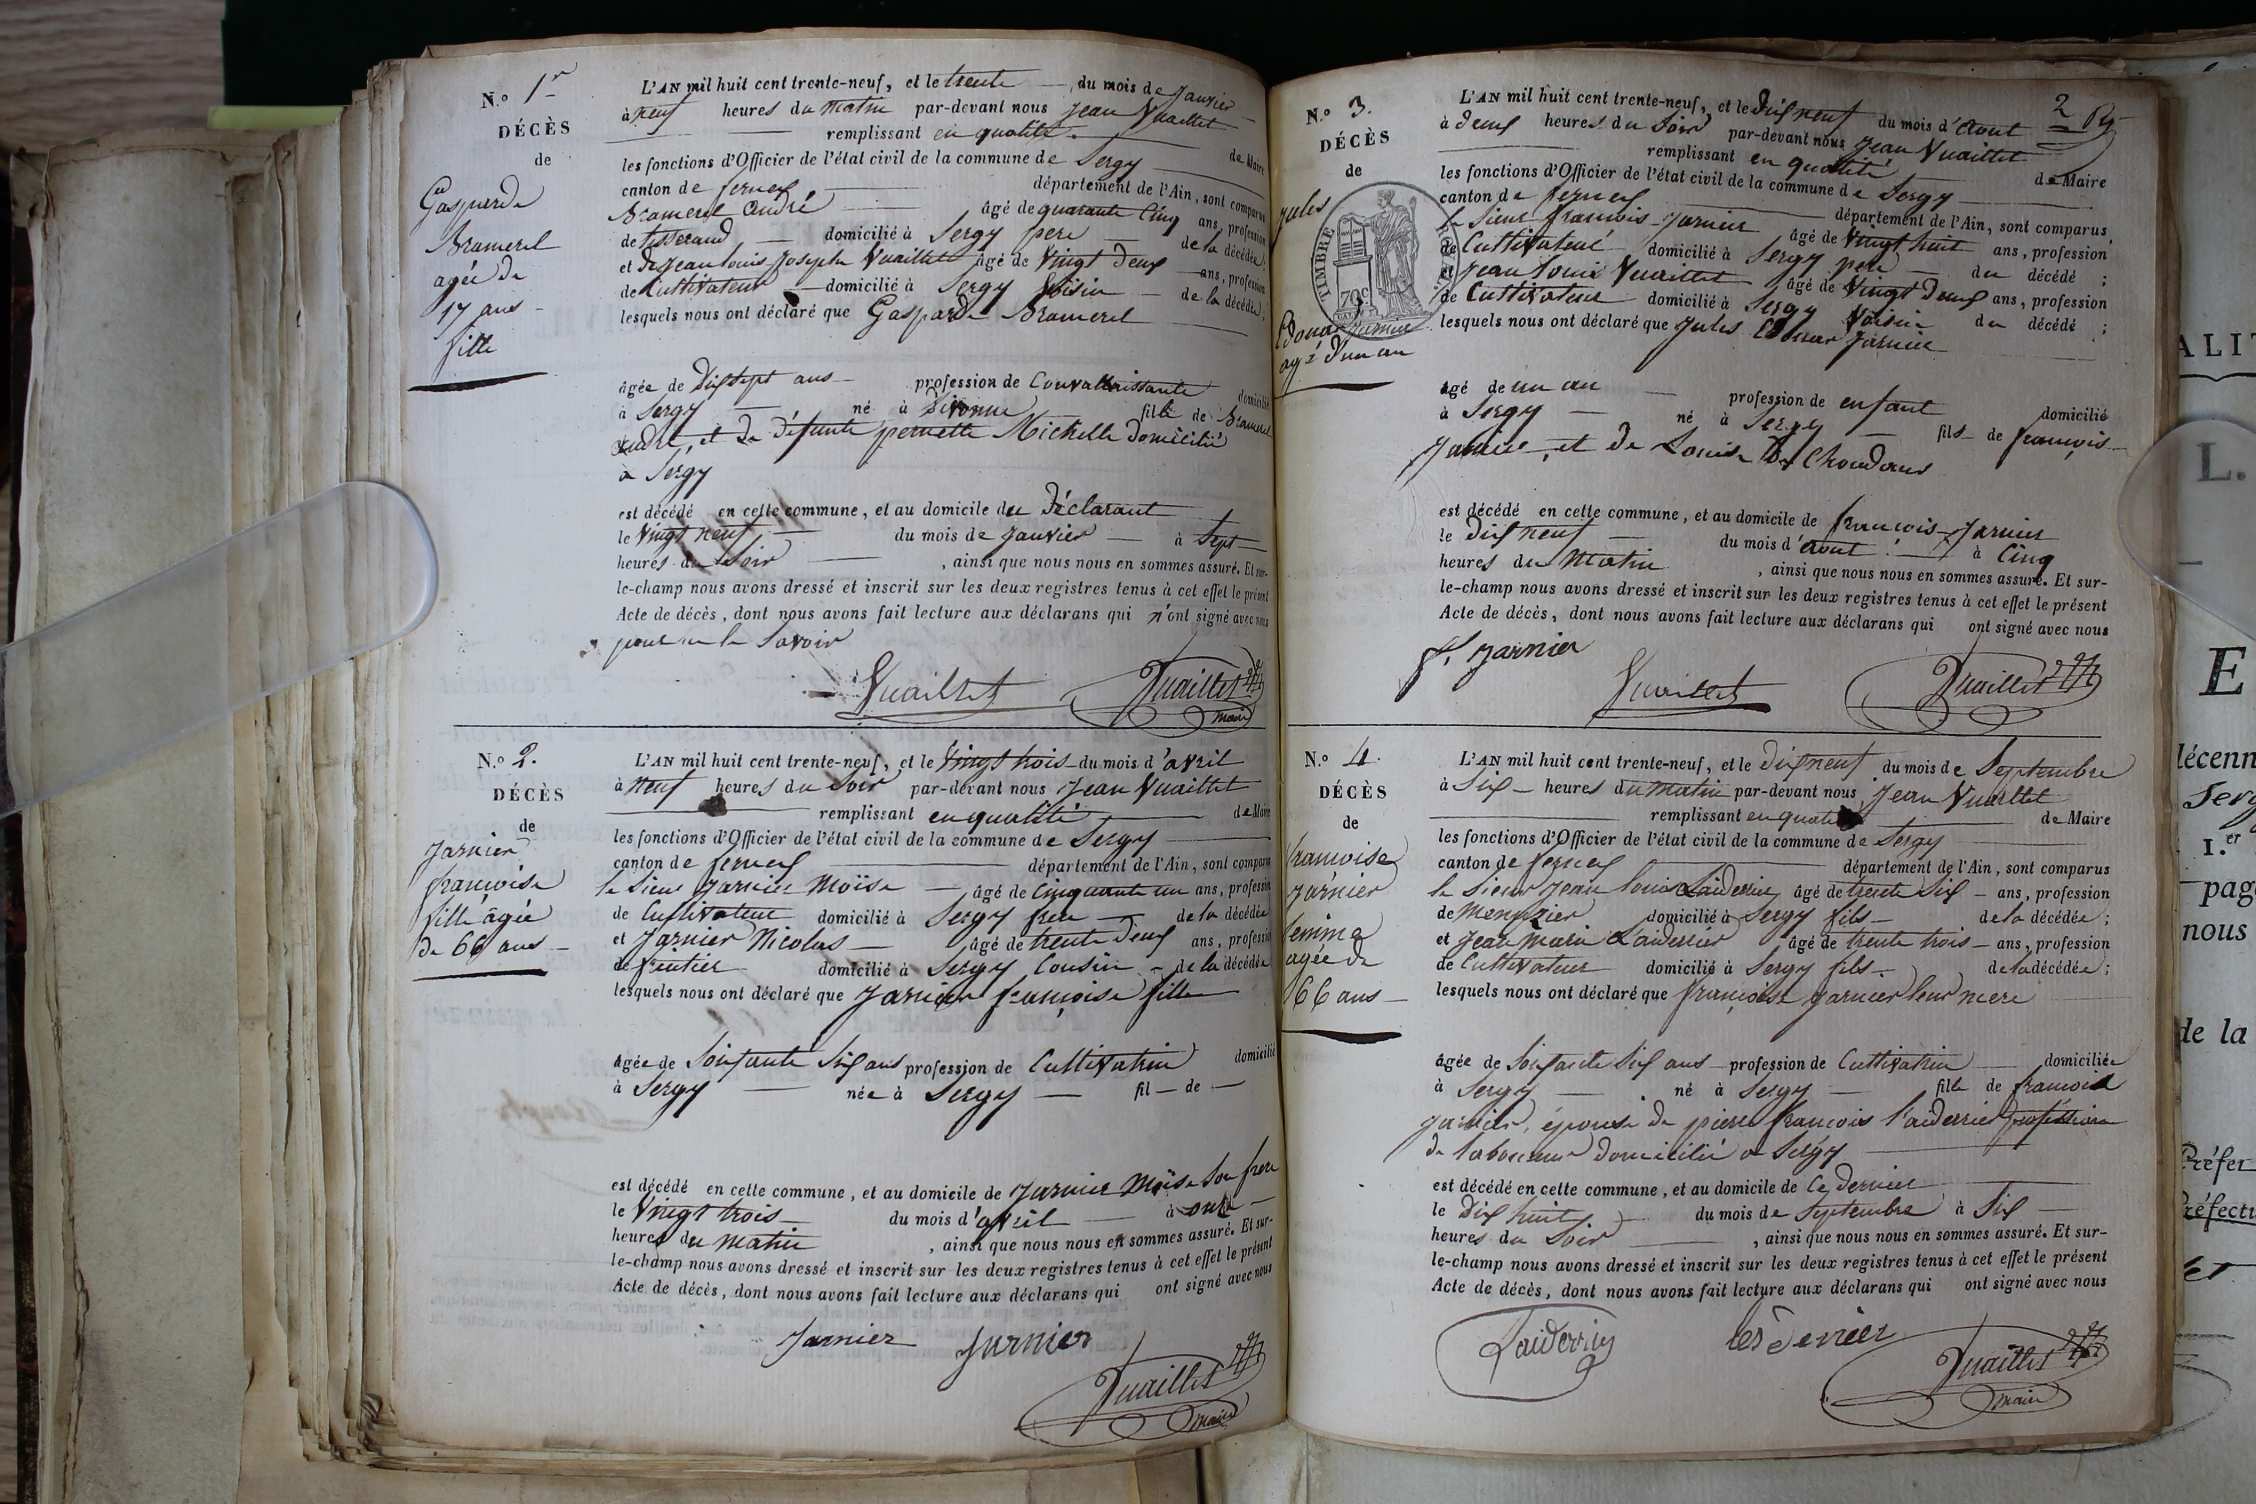 N.o 1r
DÉCÈS
de
Gasparde
Bramerel
agée de
17 ans
fille
L'AN mil huit cent trente-neuf, et le trente du mois de Janvier
à neuf heures du matin par-devant nous Jean Vuaillet
remplissant en qualité de Maire
les fonctions d'Officier de l'état civil de la commune de Sergy
canton de ferney département de l'Ain, sont comparus
Bramerel André âgé de quarante cinq ans, profession
de tisserand domicilié à Sergy pere de la décédée;
et de Jean louis Joseph Vuaillet âgé de Vingt Deux ans, profession
de Cultivateur domicilié à Sergy Voisin de la décédée;
lesquels nous ont déclaré que Gasparde Bramerel
âgée de Dix sept ans profession de domicilié
à Sergy né à Divonne fille de Bramerel
andré, et de défunte pernette Michelle domicilié
à Sergy
est décédé en cette commune, et au domicile du Déclarant
le Vingt neuf du mois de Janvier à Sept
heures du Soir, ainsi que nous nous en sommes assuré. Et sur-
le-champ nous avons dressé et inscrit sur les deux registres tenus à cet effet le présent
Acte de décès, dont nous avons fait lecture aux déclarans qui n'ont signé avec nous
pour ne le Savoir
Vuaillet Vuaillet
maire
N.o 2.
DÉCÈS
de
Jarnier
françoise
fille agée
de 66 ans
L'AN mil huit cent trente-neuf, et le Vingt trois du mois d'avril
à Neuf heures du Soir par-devant nous Jean Vuaillet
remplissant en qualité de Maire
les fonctions d'Officier de l'état civil de la commune de Sergy
canton de ferney département de l'Ain, sont comparus
le Sieur Jarnier Moïse âgé de Cinquante un ans, profession
de Cultivateur domicilié à Sergy frere de la décédée
et Jarnier Nicolas âgé de trente Deux ans, profession
de fruitier domicilié à Sergy Cousin de la décédée
lesquels nous ont déclaré que Jarnier françoise fille
âgée de Soixante Six ans profession de Cultivatrice domicilié
à Sergy née à Sergy fil de
est décédé en cette commune, et au domicile de Jarnier Moïse Son frere
le Vingt trois du mois d'avril à onze
heures du matin, ainsi que nous nous en sommes assuré. Et sur-
le-champ nous avons dressé et inscrit sur les deux registres tenus à cet effet le présent
Acte de décès, dont nous avons fait lecture aux déclarans qui ont signé avec nous
Jarnier Jarnier
Vuaillet
maire
2
N.o 3.
DÉCÈS
de
Jules
TIMBRE
70c
Edouar Jarnier
agé d'un an
L'AN mil huit cent trente-neuf, et le Dix neuf du mois d'Aout
à deux heures du Soir par-devant nous Jean Vuaillet
remplissant en qualité de Maire
les fonctions d'Officier de l'état civil de la commune de Sergy
canton de ferney département de l'Ain, sont comparus
le Sieur francois Jarnier âgé de Vingt huit ans, profession
de Cultivateur domicilié à Sergy pere du décédé;
et Jean louis Vuaillet âgé de Vingt Deux ans, profession
de Cultivateur domicilié à Sergy Voisin du décédé;
lesquels nous ont déclaré que Jules Edouar Jarnier
âgé de un an profession de enfant domicilié
à Sergy né à Sergy fils de françois
Jarnier, et de Louise Choudans
est décédé en cette commune, et au domicile de francois Jarnier
le Dix neuf du mois d'Aout à Cinq
heures du Matin, ainsi que nous nous en sommes assuré. Et sur-
le-champ nous avons dressé et inscrit sur les deux registres tenus à cet effet le présent
Acte de décès, dont nous avons fait lecture aux déclarans qui ont signé avec nous
f. Jarnier
Vuaillet Vuaillet
N.o 4.
DÉCÈS
de
francoise
Jarnier
femme
agée de
66 ans
L'AN mil huit cent trente-neuf, et le Dix neuf du mois de Septembre
à Six heures du matin par-devant nous Jean Vuaillet
remplissant en qualité de Maire
les fonctions d'Officier de l'état civil de la commune de Sergy
canton de ferney département de l'Ain, sont comparus
le Sieur Jean louis Laiderrier âgé de trente Six ans, profession
de Menuzier domicilié à Sergy fils de la décédée;
et Jean Marie Laiderrier âgé de trente trois ans, profession
de Cultivateur domicilié à Sergy fils de la décédée;
lesquels nous ont déclaré que françoise Jarnier leur mere
âgée de Soixante Six ans profession de Cultivatrice domiciliée
à Sergy né à Sergy fille de francois
Jarnier, épouse de pierre francois l'aiderrier profession
de laboureur domicilié a Sergy
est décédé en cette commune, et au domicile de Ce dernier
le Dix huit du mois de Septembre à Six
heures du Soir, ainsi que nous nous en sommes assuré. Et sur-
le-champ nous avons dressé et inscrit sur les deux registres tenus à cet effet le présent
Acte de décès, dont nous avons fait lecture aux déclarans qui ont signé avec nous
Laiderrier
Vuaillet
maire
ALIT
L.
E
décenn
Serg
1.er
pag
nous
de la
Préfet
Préfectu